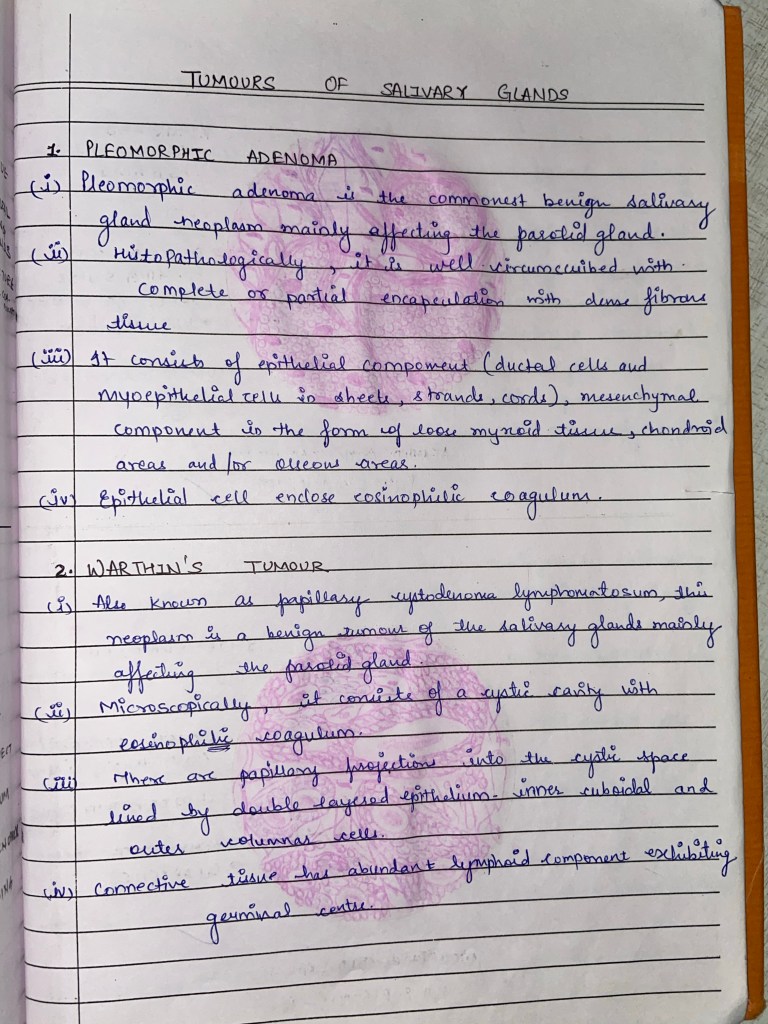 TUMOURS OF SALIVARY GLANDS
1. PLEOMORPHIC ADENOMA
(i) Pleomorphic adenoma is the commonest benign salivary
gland neoplasm mainly affecting the parotid gland.
(ii) Histopathologically, it is well circumscribed with
complete or partial encapsulation with dense fibrous
tissue
(iii) It consists of epithelial component (ductal cells and
myoepithelial cells in sheets, strands, cords), mesenchymal
component in the form of loose myxoid tissue, chondroid
areas and/or osseous areas.
(iv) Epithelial cell enclose eosinophilic coagulum.
2. WARTHIN'S TUMOUR
(i) Also known as papillary cystodenoma lymphomatosum, this
neoplasm is a benign tumour of the salivary glands mainly
affecting the parotid gland.
(ii) Microscopically, it consists of a cystic cavity with
eosinophilic coagulum.
(iii) There are papillary projections into the cystic space
lined by double layered epithelium - inner cuboidal and
outer columnar cells.
(iv) Connective tissue has abundant lymphoid component exhibiting
germinal centre.